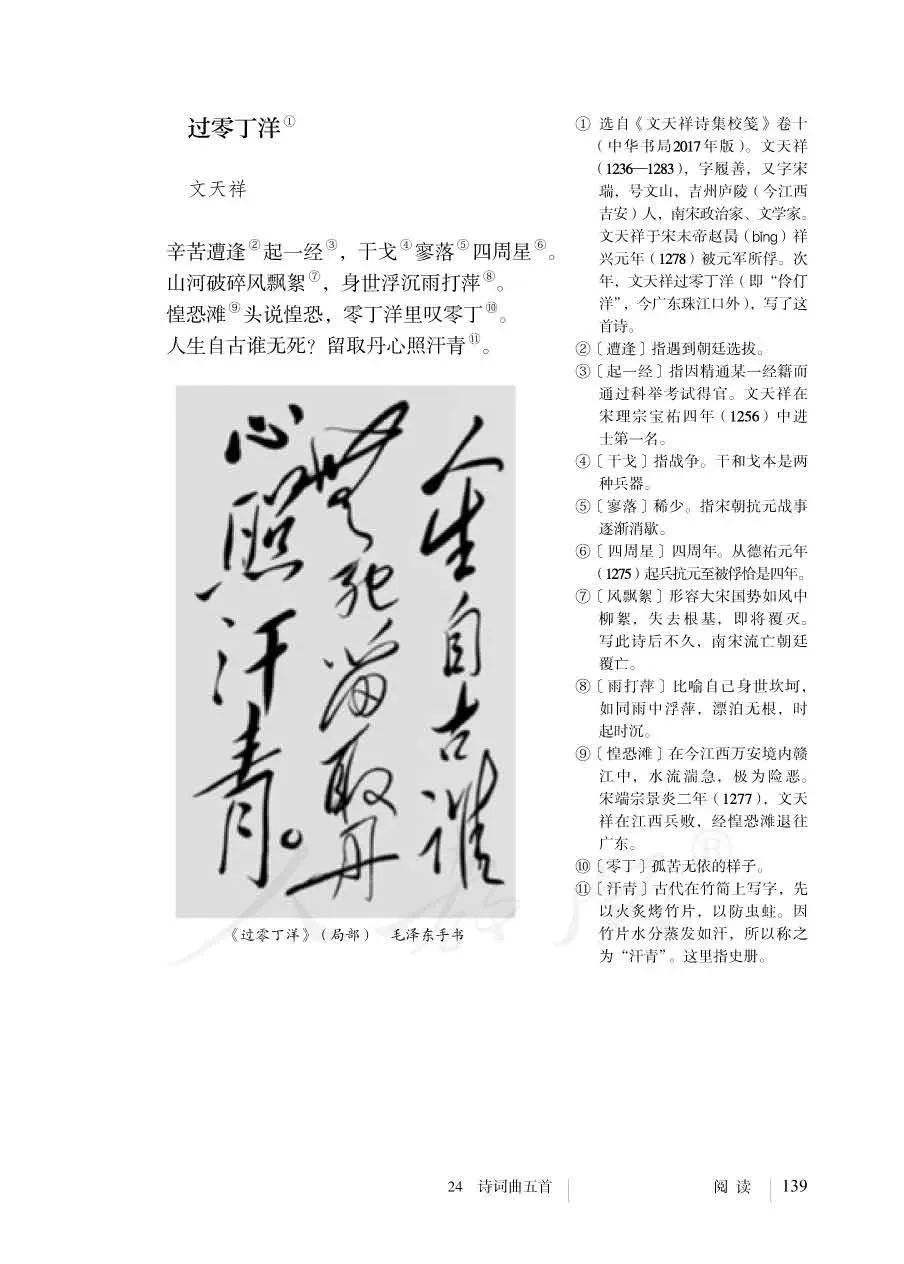 过零丁洋①
文天祥
辛苦遭逢②起一经③，干戈④寥落⑤四周星⑥。
山河破碎风飘絮⑦，身世浮沉雨打萍⑧。
惶恐滩⑨头说惶恐，零丁洋里叹零丁⑩。
人生自古谁无死？留取丹心照汗青⑪。
人生自古谁
无死留取丹
心照汗青。
《过零丁洋》（局部）　毛泽东手书
① 选自《文天祥诗集校笺》卷十
（中华书局2017年版）。文天祥
（1236—1283），字履善，又字宋
瑞，号文山，吉州庐陵（今江西
吉安）人，南宋政治家、文学家。
文天祥于宋末帝赵昺（bǐng）祥
兴元年（1278）被元军所俘。次
年，文天祥过零丁洋（即“伶仃
洋”，今广东珠江口外），写了这
首诗。
②〔遭逢〕指遇到朝廷选拔。
③〔起一经〕指因精通某一经籍而
通过科举考试得官。文天祥在
宋理宗宝祐四年（1256）中进
士第一名。
④〔干戈〕指战争。干和戈本是两
种兵器。
⑤〔寥落〕稀少。指宋朝抗元战事
逐渐消歇。
⑥〔四周星〕四周年。从德祐元年
（1275）起兵抗元至被俘恰是四年。
⑦〔风飘絮〕形容大宋国势如风中
柳絮，失去根基，即将覆灭。
写此诗后不久，南宋流亡朝廷
覆亡。
⑧〔雨打萍〕比喻自己身世坎坷，
如同雨中浮萍，漂泊无根，时
起时沉。
⑨〔惶恐滩〕在今江西万安境内赣
江中，水流湍急，极为险恶。
宋端宗景炎二年（1277），文天
祥在江西兵败，经惶恐滩退往
广东。
⑩〔零丁〕孤苦无依的样子。
⑪〔汗青〕古代在竹简上写字，先
以火炙烤竹片，以防虫蛀。因
竹片水分蒸发如汗，所以称之
为“汗青”。这里指史册。
24　诗词曲五首
阅 读　139